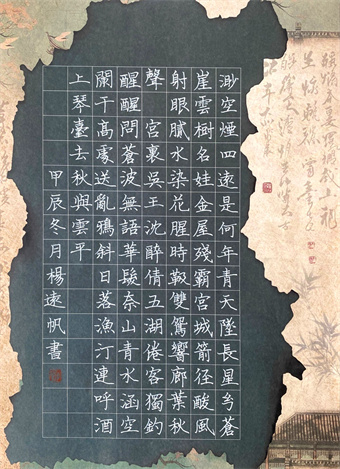 渺空煙四遠是何年青天墜長星兮蒼
崖雲樹名娃金屋殘霸宮城箭徑酸風
射眼膩水染花腥時靸雙鴛響廊葉秋
聲 宮裏吳王沈醉倩五湖倦客獨釣
醒醒問蒼波無語華髮奈山青水涵空
闌干高處送亂鴉斜日落漁汀連呼酒
上琴臺去秋與雲平
甲辰冬月楊遠帆書